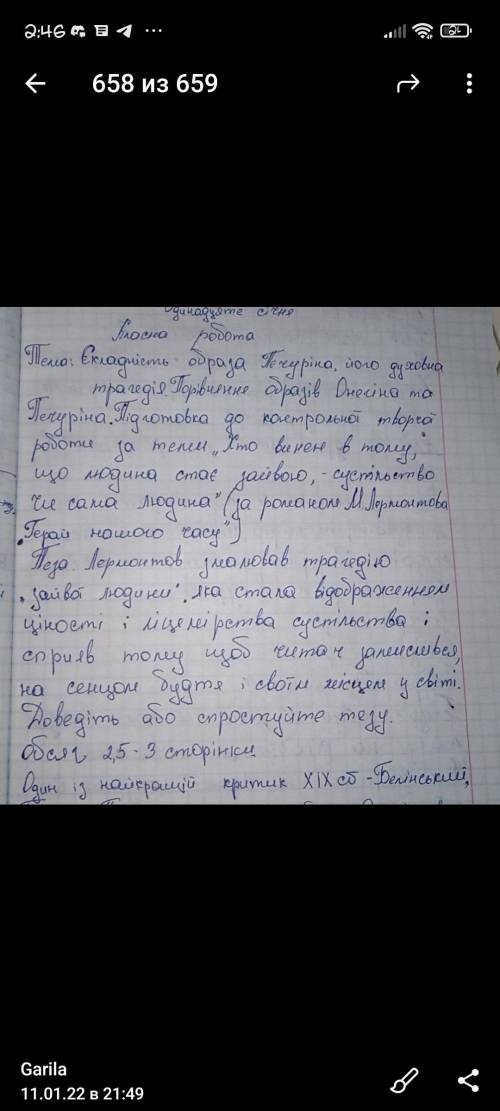 2:46
658 из 659
Одинадцяте січня
Класна робота
Тема: Складність образа Печуріна, його духовна
трагедія. Порівняння образів Онєгіна та
Печуріна. Підготовка до контрольної творчої
роботи за темою „Хто винен в тому,
що людина стає зайвою, - суспільство
чи сама людина" (за романом М.Лермонтова
„Герай нашого часу")
Теза Лермонтов змалював трагедію
„зайвої людини", яка стала відображенням
ціності і лицемірства суспільства і
сприяв тому щоб читач замислився,
на сенцом буття і своїм місцем у світі.
Доведіть або спростуйте тезу.
обсяг 2,5-3 сторінки
Один із найкращій критик XIX сб - Белінський,
Garila
11.01.22 в 21:49